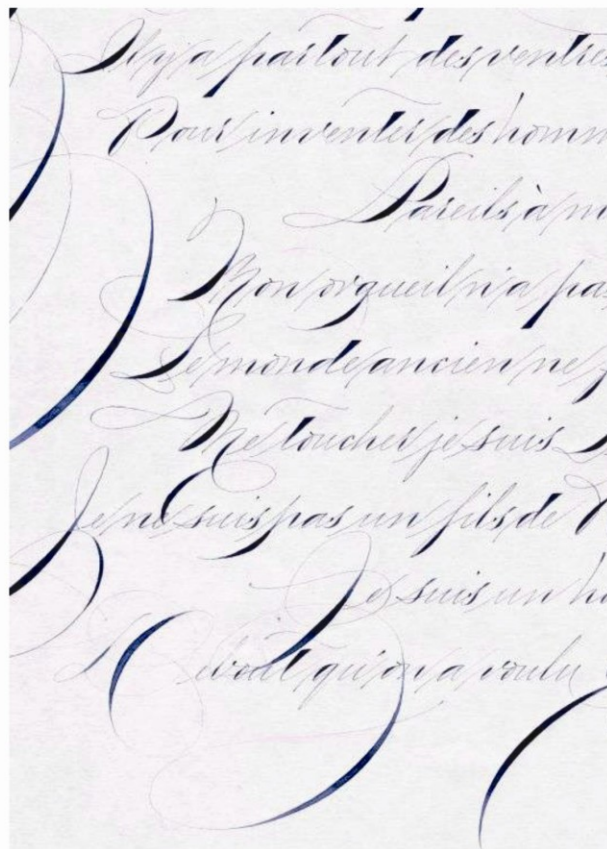 Il y a partout des ventres
Pour inventer des homm
Pareils à m
Mon orgueil n'a pas
Le monde ancien ne
Me toucher je suis
Je ne suis pas un fils de
Je suis un h
Debout qu'on a voulu